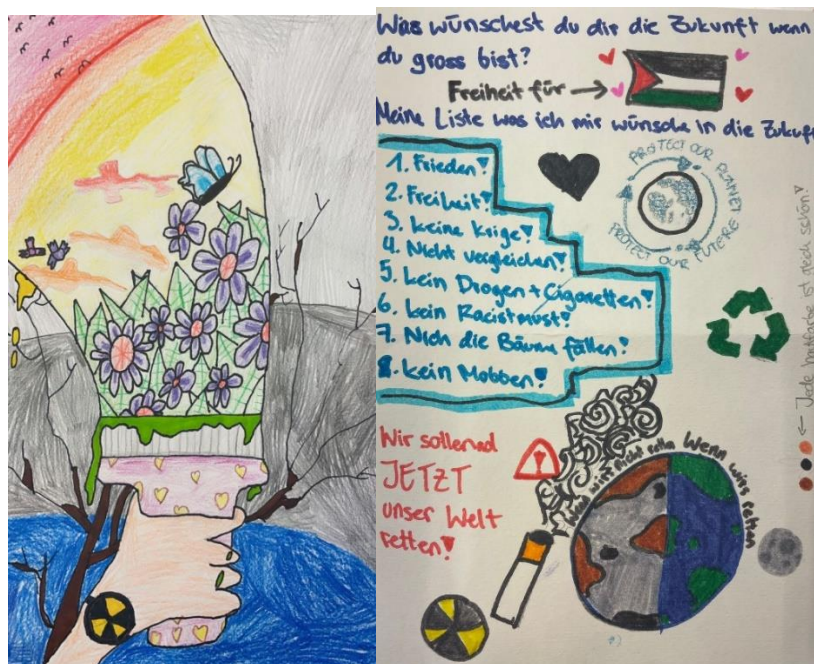 Was wünschest du dir die Zukunft wenn
du gross bist?
Freiheit für →
Meine Liste was ich mir wünsche in die Zukunft
1. Frieden!
2. Freiheit!
3. keine krige!
4. Nicht vergleichen!
5. kein Drogen + Cigaretten!
6. kein Racistmust!
7. Nich die Bäume fällen!
8. kein Mobben!
PROTECT OUR PLANET
PROTECT OUR FUTURE
← Jede hautfarbe ist gleich schön!
Wir sollened
JETZT
unser Welt
retten!
Wenn wirs nicht retten
Wenn wirs retten